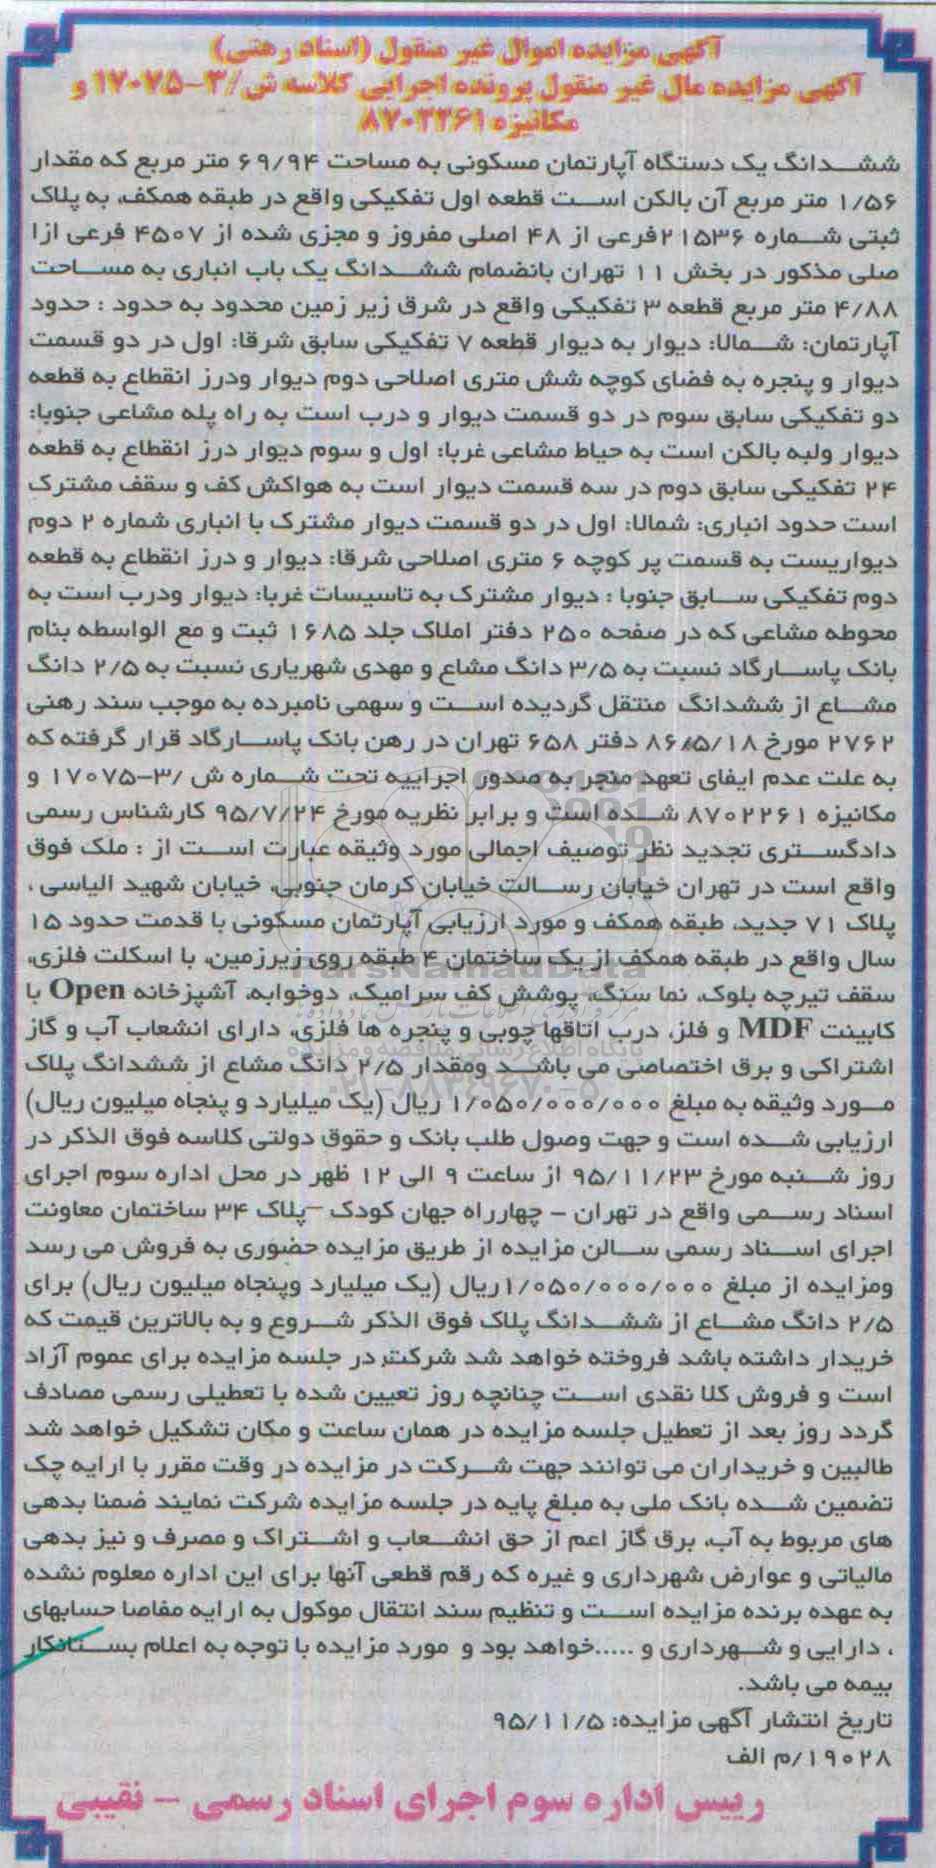 آگهی مزایده اموال غیر منقول (اسناد رهنی)
آگهی مزایده مال غیر منقول پرونده اجرایی کلاسه ش/۳-۱۷۰۷۵ و
مکانیزه ۸۷۰۲۲۶۱
ششدانگ یک دستگاه آپارتمان مسکونی به مساحت ۶۹/۹۴ متر مربع که مقدار
۱/۵۶ متر مربع آن بالکن است قطعه اول تفکیکی واقع در طبقه همکف، به پلاک
ثبتی شماره ۲۱۵۳۶فرعی از ۴۸ اصلی مفروز و مجزی شده از ۴۵۰۷ فرعی ازا
صلی مذکور در بخش ۱۱ تهران بانضمام ششدانگ یک باب انباری به مساحت
۴/۸۸ متر مربع قطعه ۳ تفکیکی واقع در شرق زیر زمین محدود به حدود : حدود
آپارتمان: شمالا: دیوار به دیوار قطعه ۷ تفکیکی سابق شرقا: اول در دو قسمت
دیوار و پنجره به فضای کوچه شش متری اصلاحی دوم دیوار ودرز انقطاع به قطعه
دو تفکیکی سابق سوم در دو قسمت دیوار و درب است به راه پله مشاعی جنوبا:
دیوار ولبه بالکن است به حیاط مشاعی غربا: اول و سوم دیوار درز انقطاع به قطعه
۲۴ تفکیکی سابق دوم در سه قسمت دیوار است به هواکش کف و سقف مشترک
است حدود انباری: شمالا: اول در دو قسمت دیوار مشترک با انباری شماره ۲ دوم
دیواریست به قسمت پر کوچه ۶ متری اصلاحی شرقا: دیوار و درز انقطاع به قطعه
دوم تفکیکی سابق جنوبا : دیوار مشترک به تاسیسات غربا: دیوار ودرب است به
محوطه مشاعی که در صفحه ۲۵۰ دفتر املاک جلد ۱۶۸۵ ثبت و مع الواسطه بنام
بانک پاسارگاد نسبت به ۳/۵ دانگ مشاع و مهدی شهریاری نسبت به ۲/۵ دانگ
مشاع از ششدانگ منتقل گردیده است و سهمی نامبرده به موجب سند رهنی
۲۷۶۲ مورخ ۸۶/۵/۱۸ دفتر ۶۵۸ تهران در رهن بانک پاسارگاد قرار گرفته که
به علت عدم ایفای تعهد منجر به صدور اجراییه تحت شماره ش /۳-۱۷۰۷۵ و
مکانیزه ۸۷۰۲۲۶۱ شده است و برابر نظریه مورخ ۹۵/۷/۲۴ کارشناس رسمی
دادگستری تجدید نظر توصیف اجمالی مورد وثیقه عبارت است از : ملک فوق
واقع است در تهران خیابان رسالت خیابان کرمان جنوبی، خیابان شهید الیاسی ،
پلاک ۷۱ جدید، طبقه همکف و مورد ارزیابی آپارتمان مسکونی با قدمت حدود ۱۵
سال واقع در طبقه همکف از یک ساختمان ۴ طبقه روی زیرزمین، با اسکلت فلزی،
سقف تیرچه بلوک، نما سنگ، پوشش کف سرامیک، دوخوابه، آشپزخانه Open با
کابینت MDF و فلز، درب اتاقها چوبی و پنجره ها فلزی، دارای انشعاب آب و گاز
اشتراکی و برق اختصاصی می باشد ومقدار ۲/۵ دانگ مشاع از ششدانگ پلاک
مورد وثیقه به مبلغ ۱/۰۵۰/۰۰۰/۰۰۰ ریال (یک میلیارد و پنجاه میلیون ریال)
ارزیابی شده است و جهت وصول طلب بانک و حقوق دولتی کلاسه فوق الذکر در
روز شنبه مورخ ۹۵/۱۱/۲۳ از ساعت ۹ الی ۱۲ ظهر در محل اداره سوم اجرای
اسناد رسمی واقع در تهران - چهارراه جهان کودک -پلاک ۳۴ ساختمان معاونت
اجرای اسناد رسمی سالن مزایده از طریق مزایده حضوری به فروش می رسد
ومزایده از مبلغ ۱/۰۵۰/۰۰۰/۰۰۰ریال (یک میلیارد وپنجاه میلیون ریال) برای
۲/۵ دانگ مشاع از ششدانگ پلاک فوق الذکر شروع و به بالاترین قیمت که
خریدار داشته باشد فروخته خواهد شد شرکت در جلسه مزایده برای عموم آزاد
است و فروش کلا نقدی است چنانچه روز تعیین شده با تعطیلی رسمی مصادف
گردد روز بعد از تعطیل جلسه مزایده در همان ساعت و مکان تشکیل خواهد شد
طالبین و خریداران می توانند جهت شرکت در مزایده در وقت مقرر با ارایه چک
تضمین شده بانک ملی به مبلغ پایه در جلسه مزایده شرکت نمایند ضمنا بدهی
های مربوط به آب، برق گاز اعم از حق انشعاب و اشتراک و مصرف و نیز بدهی
مالیاتی و عوارض شهرداری و غیره که رقم قطعی آنها برای این اداره معلوم نشده
به عهده برنده مزایده است و تنظیم سند انتقال موکول به ارایه مفاصا حسابهای
، دارایی و شهرداری و .....خواهد بود و مورد مزایده با توجه به اعلام بستانکار
بیمه می باشد.
تاریخ انتشار آگهی مزایده: ۹۵/۱۱/۵
۱۹۰۲۸/م الف
رییس اداره سوم اجرای اسناد رسمی - نقیبی
ParsNamadData
پایگاه اطلاع رسانی مناقصه و مزایده
۰۲۱-۸۸۳۴۹۶۷۰-۵